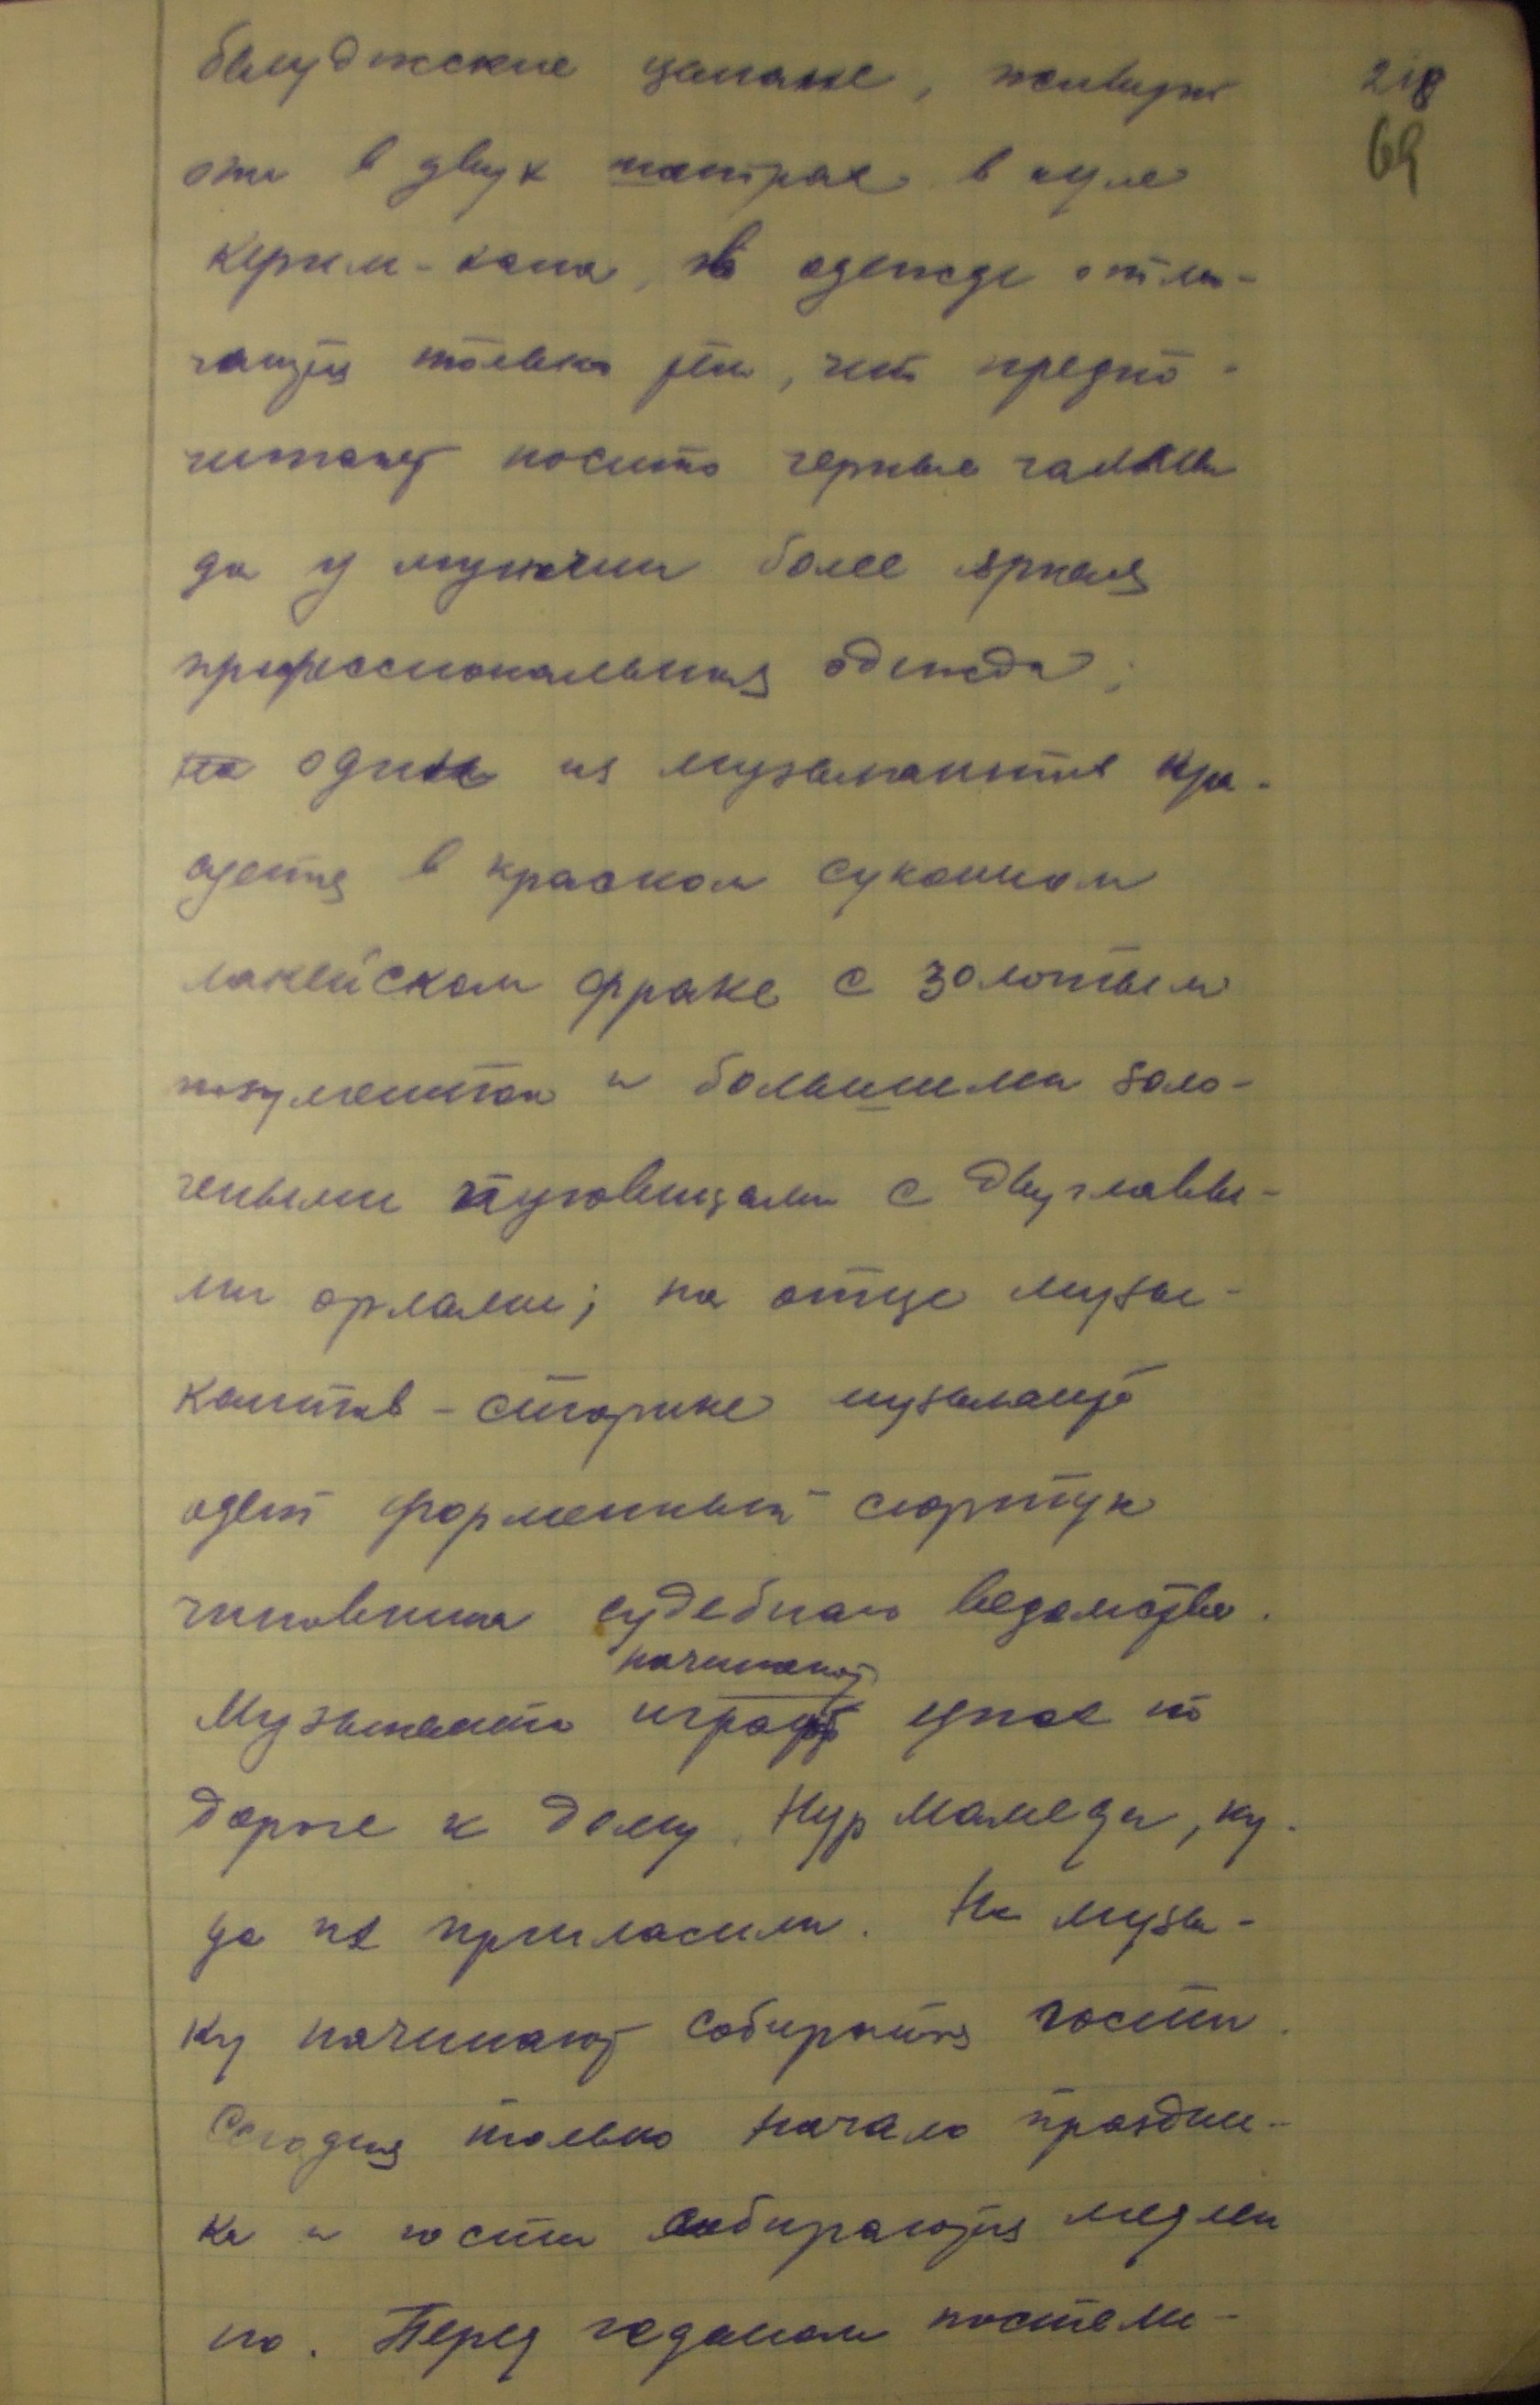 белуджские цыгане, живущие 218
они в двух шатрах в ауле 69
Керим-хана, в одежде отли-
чаются только тем, что предпо-
читают носить черные чалмы
да у мужчин более яркая
профессиональная одежда;
на один из музыкантов кра-
суется в красном суконном
лакейском фраке с золотым
позументом и большими золо-
чеными пуговицами с двуглавы-
ми орлами; на отце музы-
кантов - старике музыканте
одет форменный сюртук
чиновника судебного ведомства.
начинают
Музыканты играть еще по
дороге к дому Нур Мамеда, ку-
да их пригласили. На музы-
ку начинают собираться гости.
Сегодня только начало праздни-
ка и гости собираются медлен
но. Перед геданом постели-